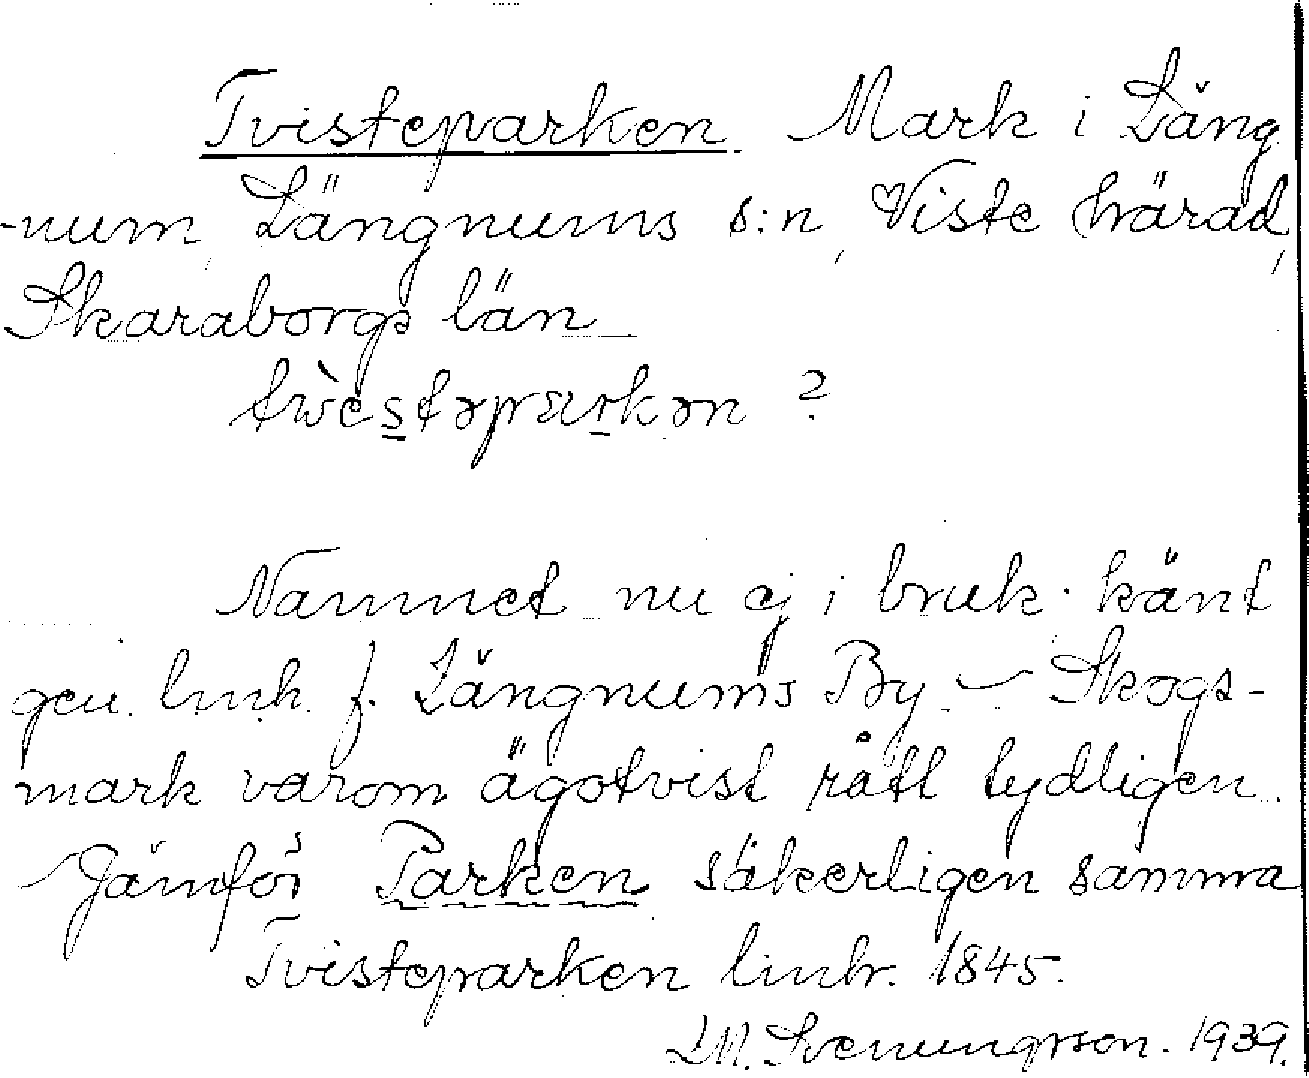 Tvisteparken. Mark i Läng
-num, Längnums s:n, Viste härad,
Skaraborgs län
twὲstəparkən ?
Namnet nu ej i bruk. känt
gen. lmh. f. Längnums By - Skogs-
mark varom ägotvist rått tydligen.
Jämför Parken säkerligen samma
Tvisteparken lmhr. 1845.
Svenungsson. 1939.